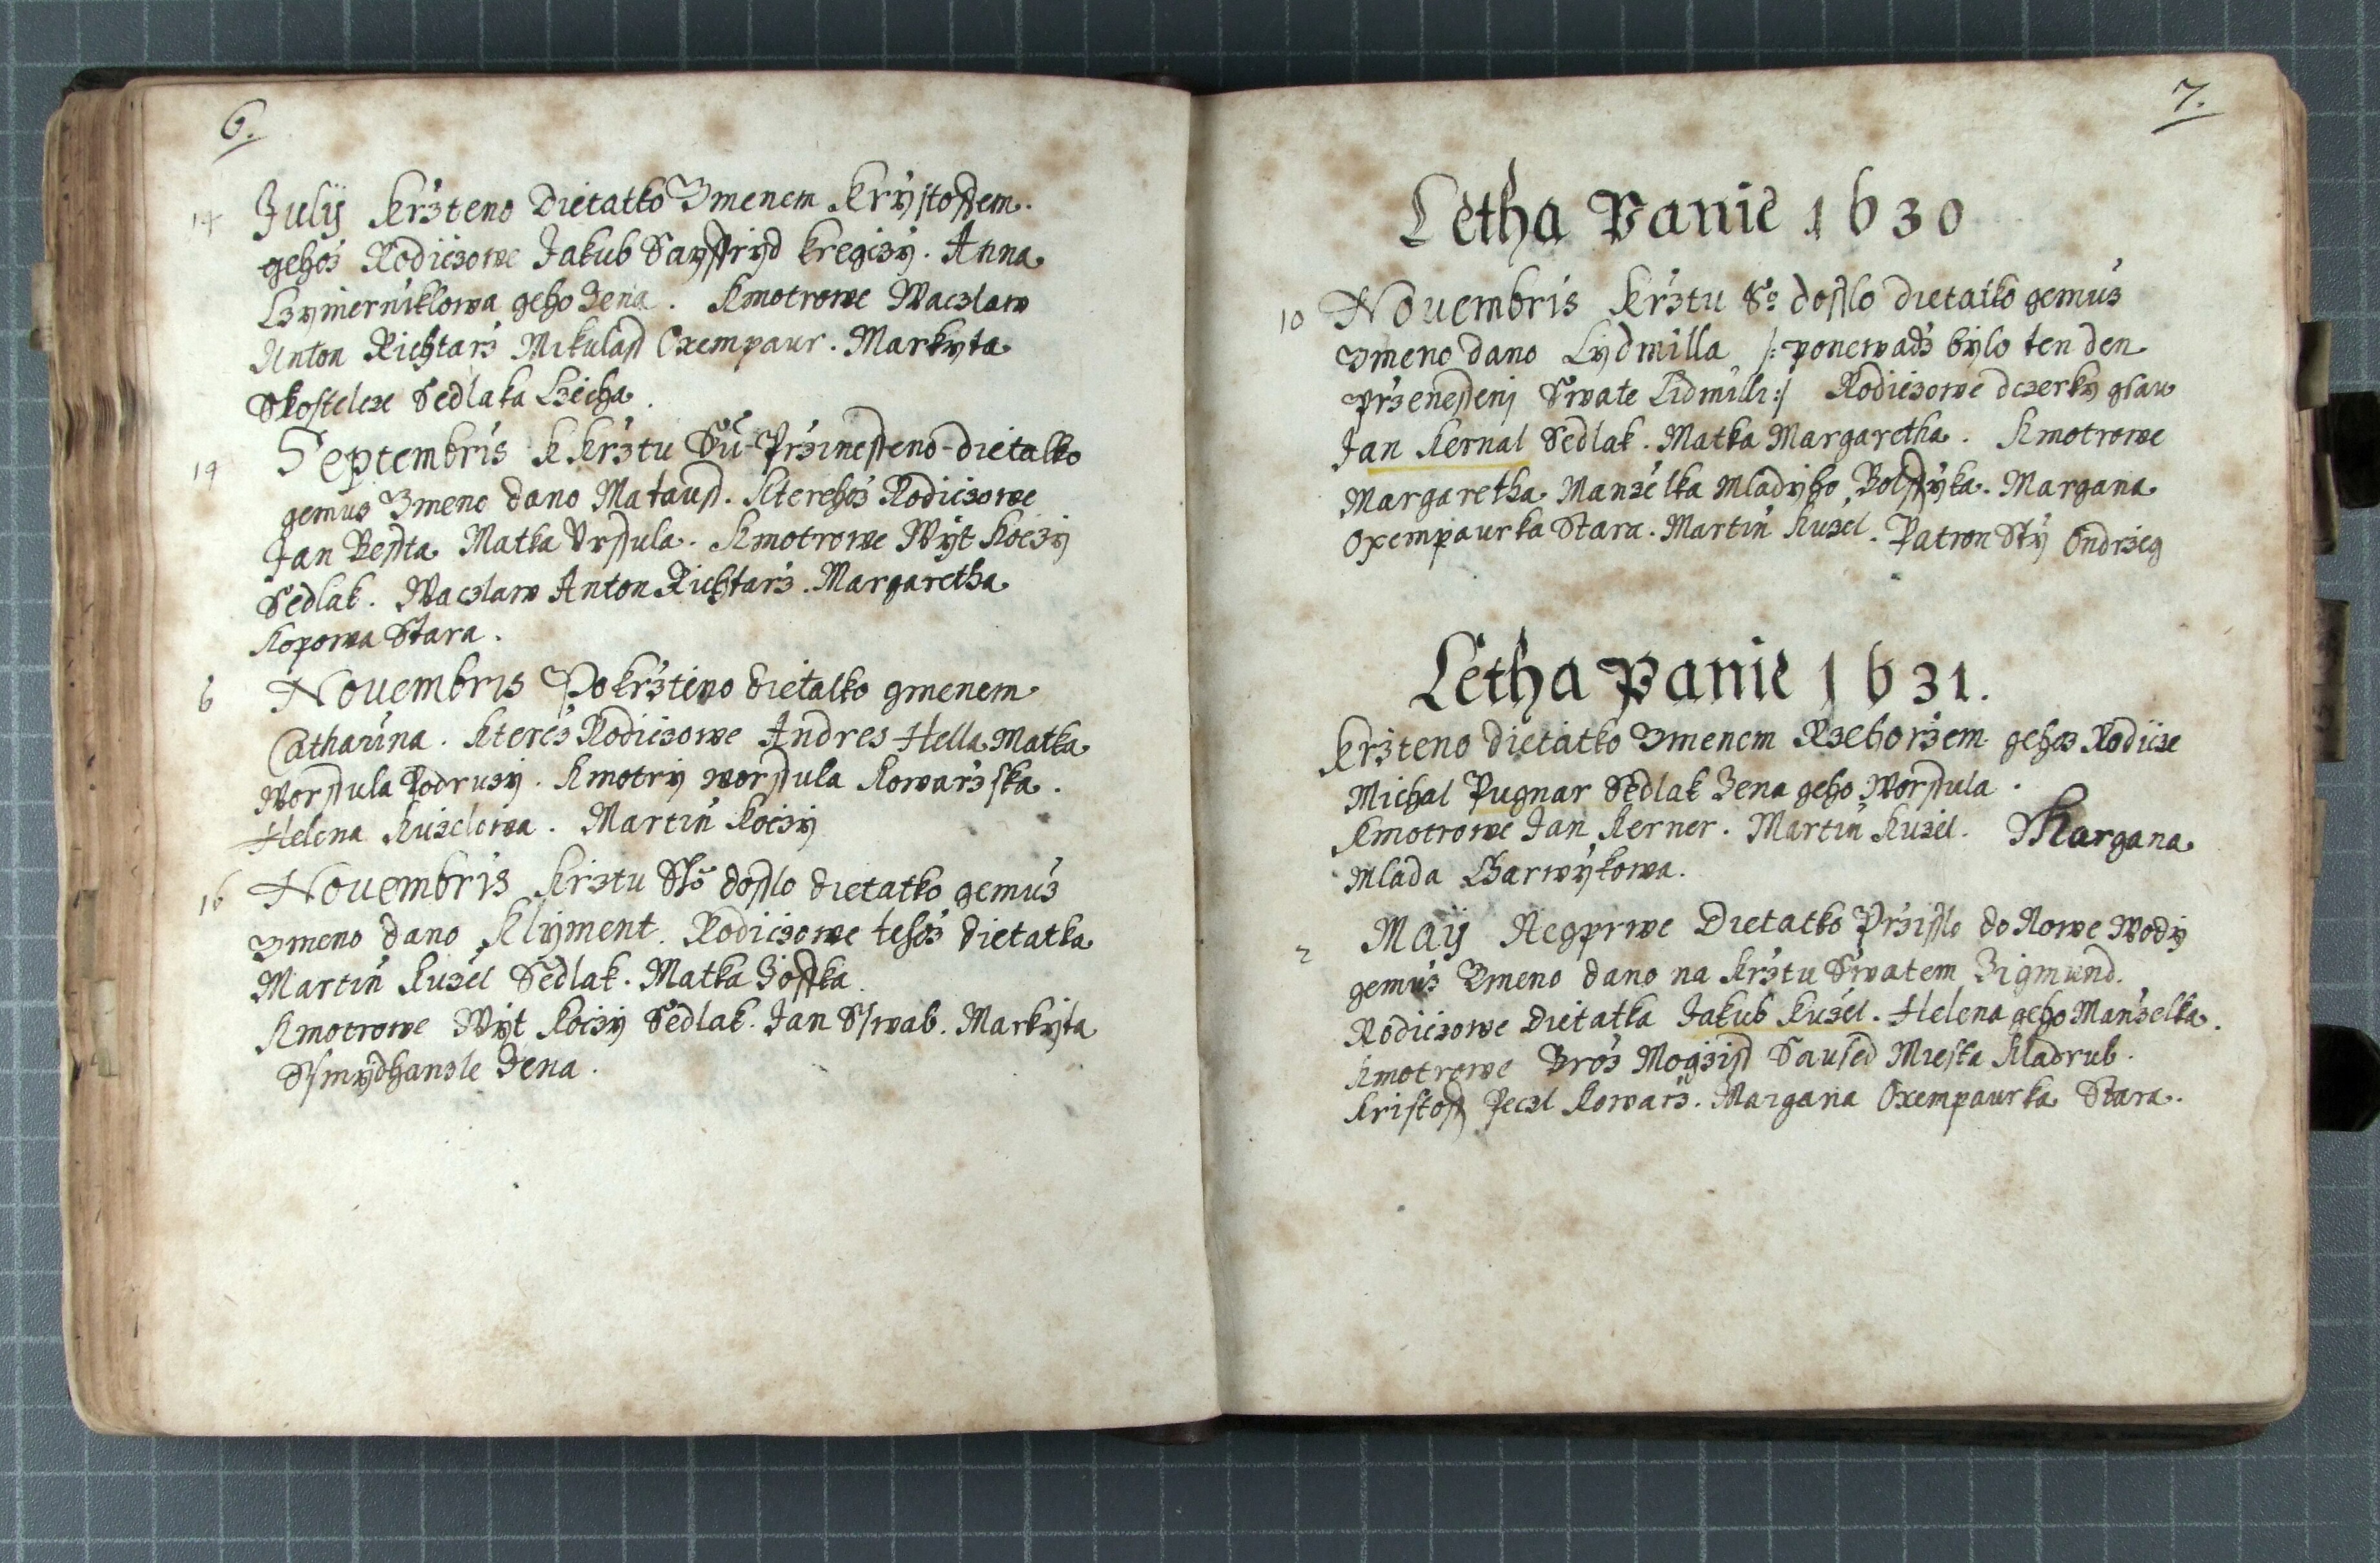 6.
14 Julij Krzteno Dietatko Jmenem Krystoffem.
gehoż Rodiczowe Jakub Sayffryd kregczy. Anna
geho Żena. Kmotrowe Waczlaw
Anton Richtarż Mikulaß Oxempaur. Markyta
Skostelcze Sedlaka Czecha.
14 Septembris K Krztu Prżineßeno dietatko
gemuż Jmeno dano Matauß. Kterehoż Rodiczowe
Jan Beßta Matka Urßula. Kmotrowe Wyt Koczy
Sedlak. Waczlaw Anton Richtarż. Margaretha
Kopowa Stara.
6 Nouembris Pokrżtěno dietatko gmenem
Catharina. Ktereż Rodiczowe Andres Hella Matka
Worßula Podruzy. Kmotry worßula Kowarżska.
Helena Kuzelowa. Martin Koczy
16 Nouembris Krztu Sº doßlo dietatko gemuż
Jmeno dano Klyment. Rodiczowe tehoż dietatka
Martin Kużel Sedlak. Matka Żoffka.
Kmotrowe Wyt Koczy Sedlak. Jan Sswab. Markyta
Ssmydhanzle Żena.
7.
Letha Panie 1630
10 Nouembris Krżtu Sº doßlo dietatko gemuż
Jmeno dano Lydmilla /: ponewadż bylo ten den
Prżeneßenj Swate Lidmilli :/ Rodiczowe dczerky gsau
Jan Kernal Sedlak. Matka Margaretha. Kmotrowe
Margaretha Manżelka Mladyho Margana
Oxempaurka Stara. Martin Kużel. Patron Sty Ondrżeg
Letha Panie 1631.
Krżteno dietatko Jmenem Rżehorżem gehoż Rodicze
Michal Pugnar Sedlak Żena geho Worßula.
Kmotrowe Jan Kerner. Martin Kużel. Margana
Mlada Charwykowa.
2 Maij Negprwe Dietatko Prżißlo do Nowe Wody
gemuż Jmeno dano na Krżtu Swatem Zigmund.
Rodiczowe Dietatka Jakub Kużel. Helena geho Manżelka.
Kmotrowe Broż Mogżiß Saused Miesta Kladrub.
Kristoff Peczl Kowarż. Margana Oxempaurka Stara.